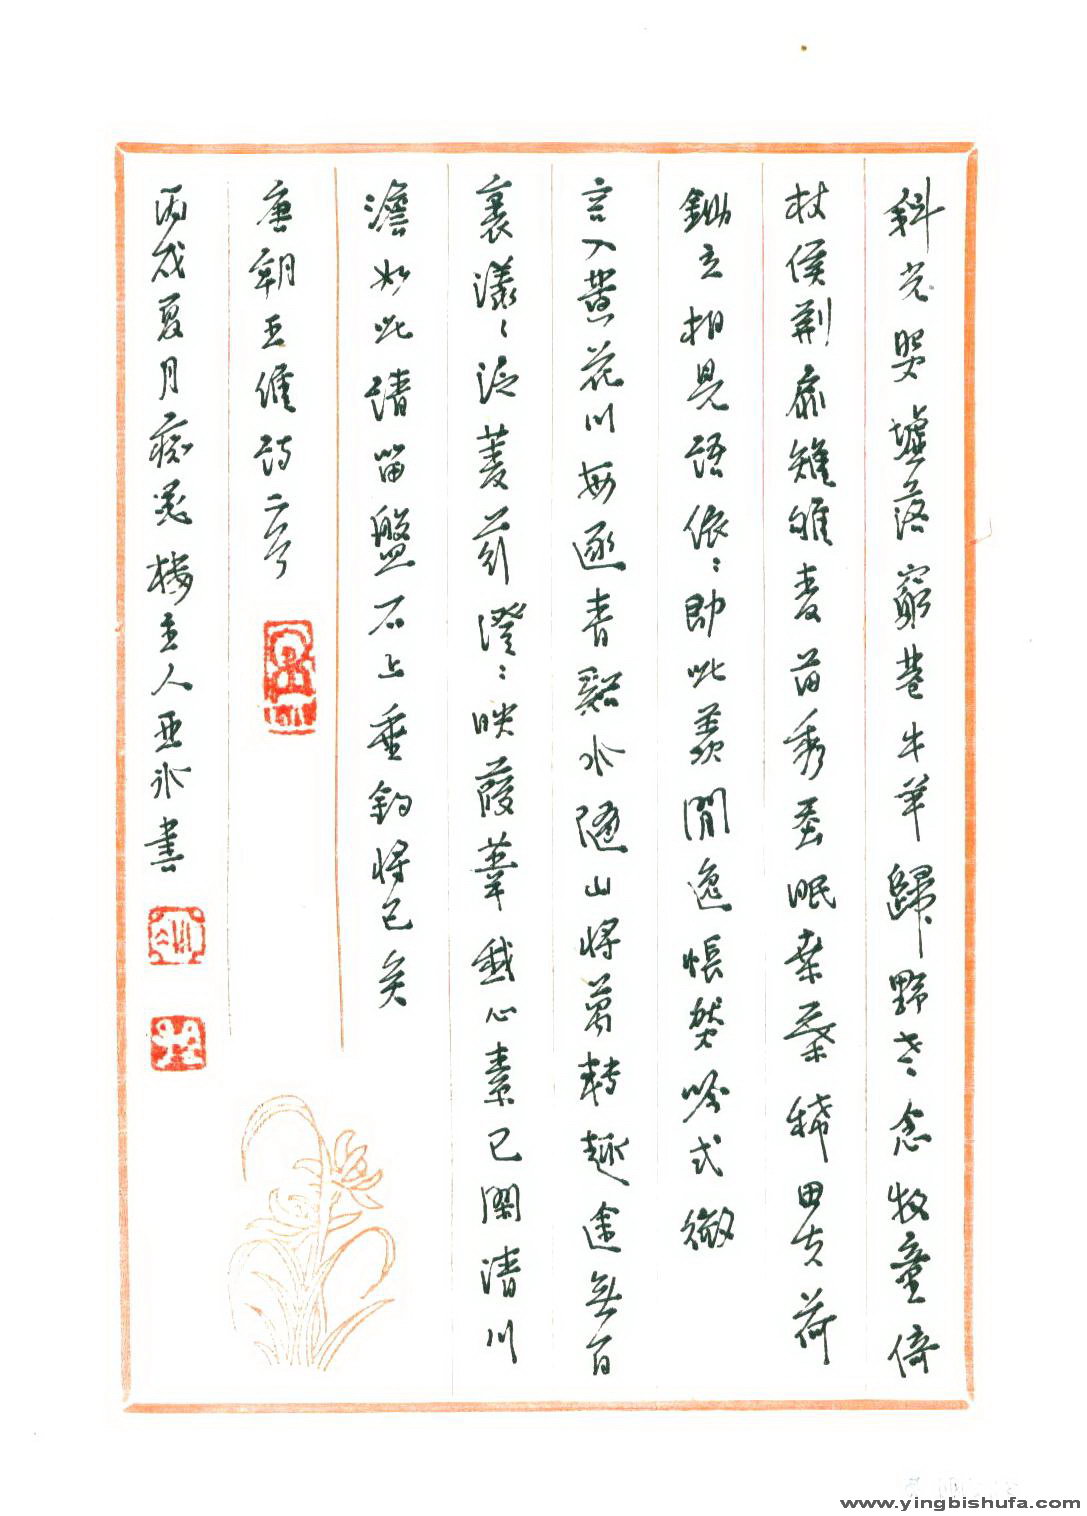 斜光照墟落窮巷牛羊歸野老念牧童倚
杖候荆扉雉雊麥苗秀蚕眠桑葉稀田夫荷
鋤立相見語依〻即此羨閒逸悵然吟式微
言入黄花川每逐青谿水隨山將萬轉趣途無百
裏漾〻泛菱荇澄〻映葭葦我心素已閑清川
澹如此請留盤石上垂釣將已矣
唐朝王維詩二首
丙戌夏月痴墨樓主人亚冰書
www.yingbishufa.com